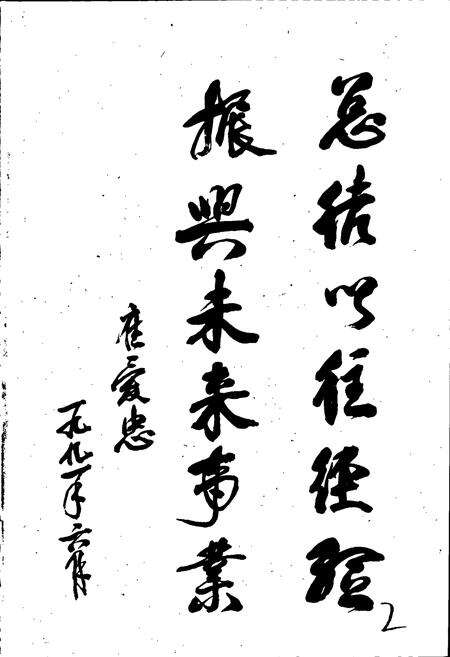 总结以往经验
振兴未来事业
崔爱忠
一九九一年六月
2